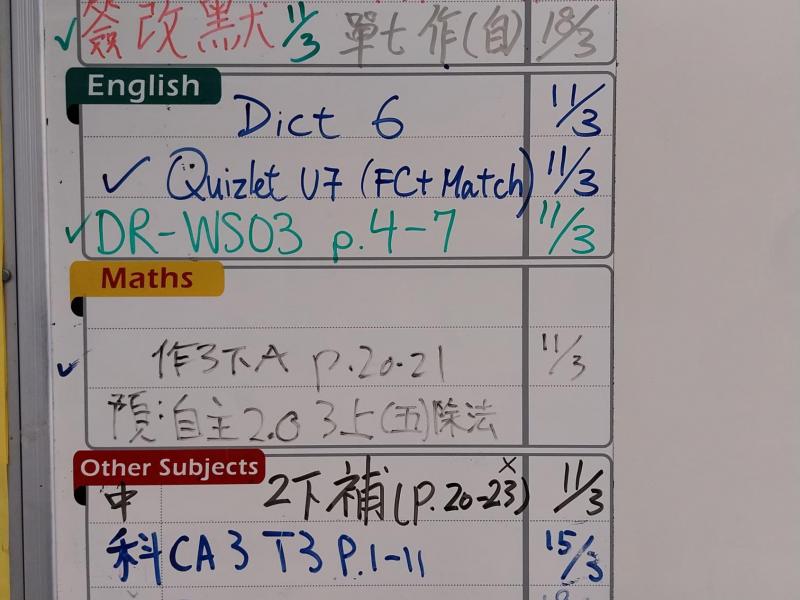 ✓ 簽改默 11/3 單七作(自) 18/3
English
Dict 6 11/3
✓ Quizlet U7 (FC+Match) 11/3
✓ DR-WS03 p.4-7 11/3
Maths
✓ 作3下A p.20-21 11/3
預:自主2.0 3上(五)除法
Other Subjects
中 2下補(p.20-23) 11/3
科 CA3 T3 P.1-11 15/3